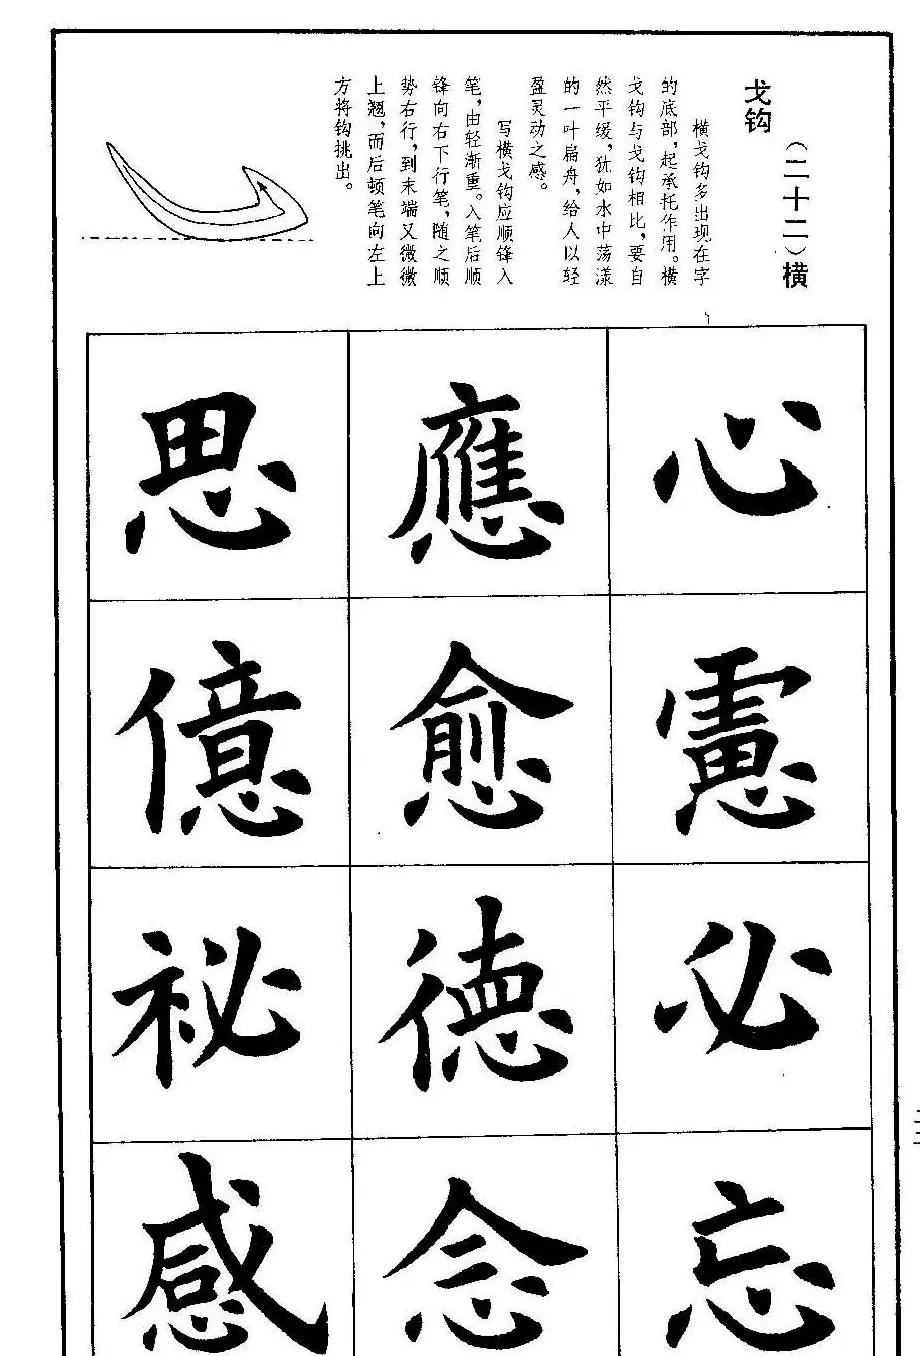 （二十二）横
戈钩
横戈钩多出现在字
的底部，起承托作用。横
戈钩与戈钩相比，要自
然平缓，犹如水中荡漾
的一叶扁舟，给人以轻
盈灵动之感。
写横戈钩应顺锋入
笔，由轻渐重。入笔后顺
锋向右下行笔，随之顺
势右行，到末端又微微
上翘，而后顿笔向左上
方将钩挑出。
心
慮
必
忘
應
愈
德
念
思
億
祕
感